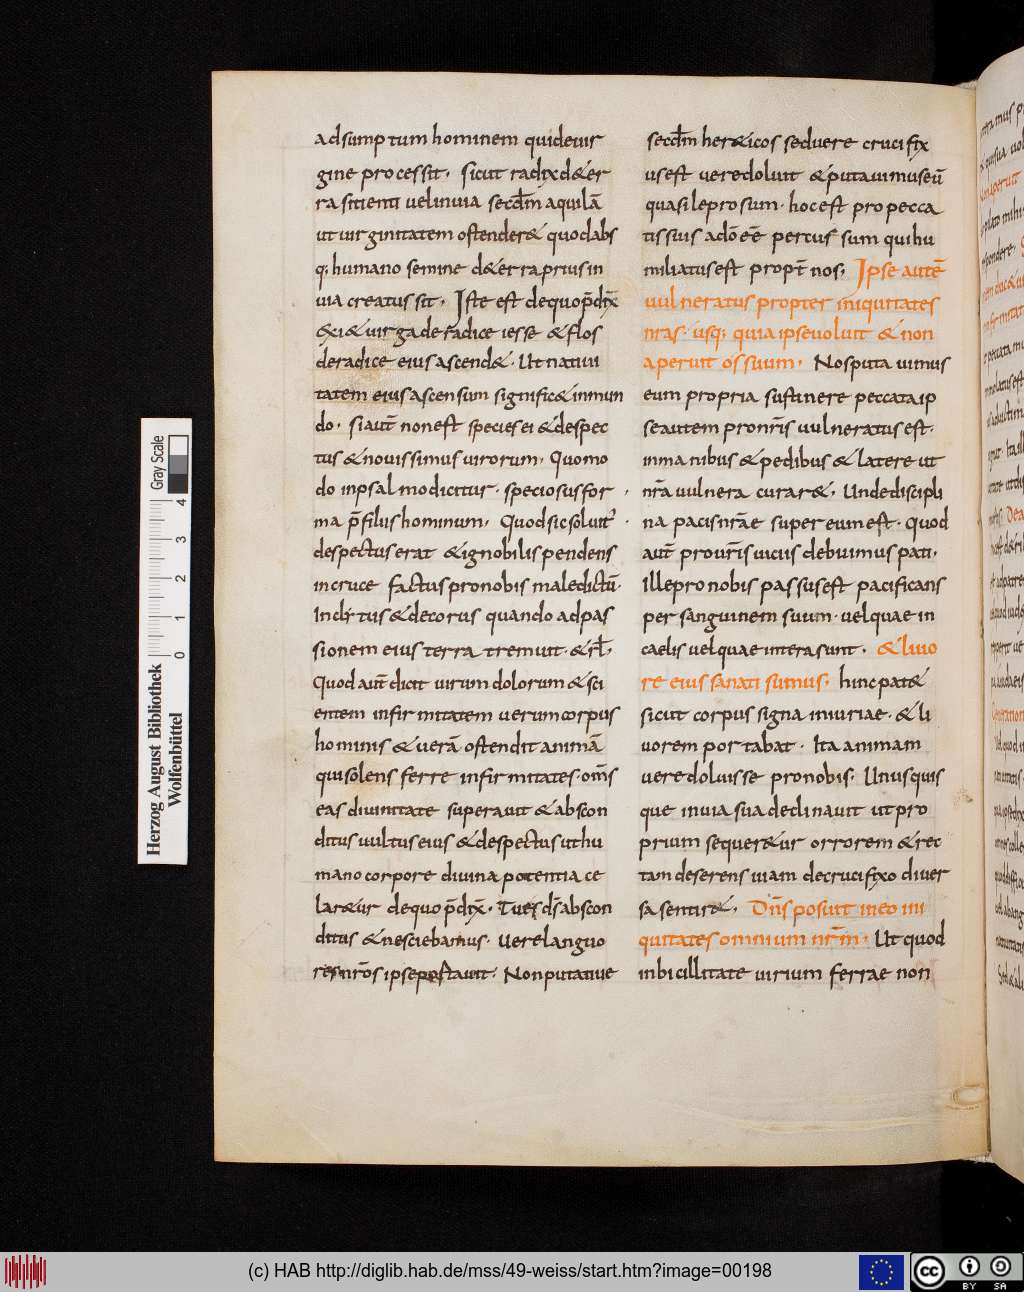 adsumptum hominem quideuir
gine processit, sicut radix d&er
ra sitienti uel inuia secdm aquilā
ut uirginitatem ostender& quod abs
q; humano semine d&erra prius in
uia creatus sit, Iste est dequo p̄dix̄
& exi& uirga de radice iesse & flos
de radice eius ascend&. Ut natiui
tatem eius ascensum signific& inmun
do, si aut̄ non est species ei & despec
tus & nouissimus uirorum, Quomo
do inpsalmo dicitur, speciosus for
ma p̄ filiis hominum, Quod sic soluit̄
despectus erat & ignobilis pendens
in cruce factus pro nobis maledictū.
Inclitus & decorus quando ad pas
sionem eius terra tremuit, & rl,
Quod aut̄ dicit uirum dolorum & sci
entem infirmitatem uerum corpus
hominis & uerā ostendit animā
qui solens ferre infirmitates. oms̄
eas diuinitate superauit & abscon
ditus uultus eius & despectus ut hu
mano corpore diuina potentia ce
lar&ur dequo p̄dix̄, Tu es ds̄ abscon
ditus & nesciebamus. Uere languo
res nr̄os ipse portauit, Non putatiue
secdm her&icos sed uere crucifix
us est uere doluit & putauimus eū
quasi leprosum. hoc est pro pecca
tis suis adōeē percussum qui hu
miliatus est propt̄ nos, Ipse autē
uulneratus propter iniquitates
nras. usq; quia ipse uoluit & non
aperuit os suum, Nos puta uimus
eum propria sustinere peccata ip
se autem pro nr̄is uulneratus est.
in manibus & pedibus & latere ut
nr̄a uulnera curar&, Unde discipli
na pacis nr̄ae super eum est. Quod
aut̄ pro ur̄is uiciis debuimus pati,
ille pro nobis passus est pacificans
per sanguinem suum. uel quae in
caelis uel quae in terra sunt, & liuo
re eius sanati sumus, hinc pat&
sicut corpus signa iniuriae. & li
uorem portabat. Ita animam
uere doluisse pro nobis. Unus quis
que inuia sua declinauit ut pro
prium sequer&ur orrorem & rec
tam deserens uiam de crucifixo diuer
sa sentir&, Dn̄s posuit in eo ini
quitates omnium nr̄m, Ut quod
inbicillitate uirium ferrae non
Herzog August Bibliothek
Wolfenbüttel
0 1 2 3 4
Gray Scale
(c) HAB http://diglib.hab.de/mss/49-weiss/start.htm?image=00198
cc BY SA